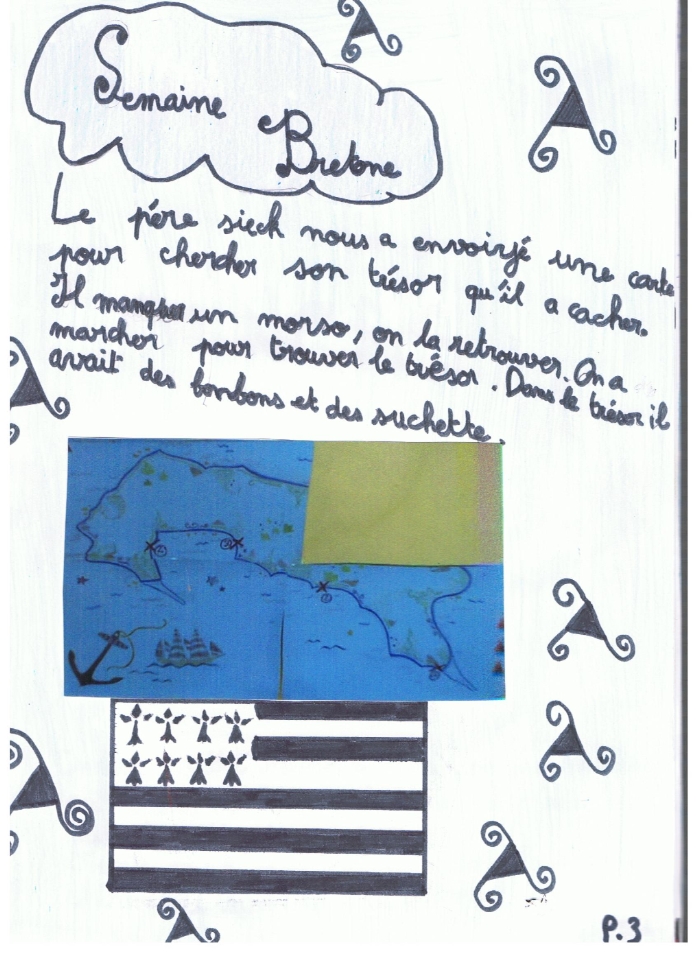 Semaine
Bretone
Le père sieck nous a envoiyé une carte
pour chercher son trésor qu'il a cacher.
Il manquer un morso, on la retrouver. On a
marcher pour trouver le trésor. Dans le trésor il
avait des bonbons et des suchette.
P.3